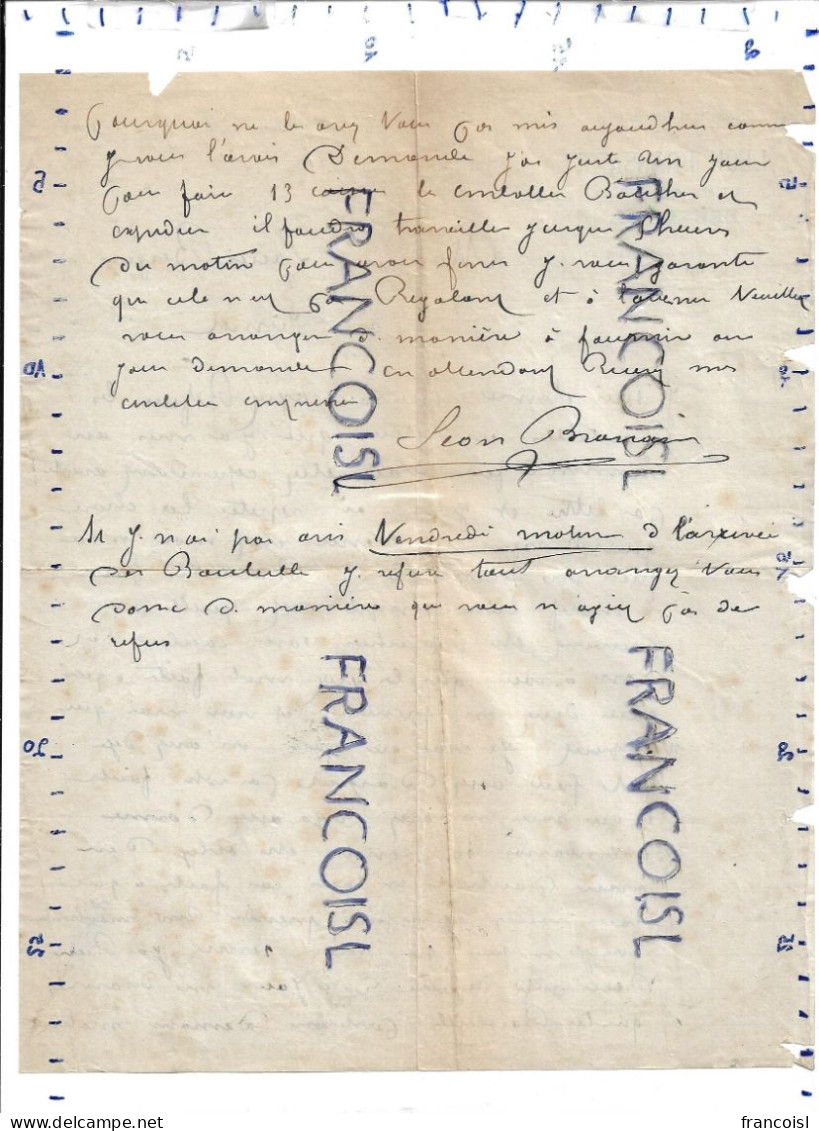 Pourquoi ne les avez Vous pas mis aujourdhui comme
je vous l'avais Demandé j'ai juste un jour
pour faire 13 caisses les emballer Bâcher et
expedier il faudra travailler jusque heures
du matin pour avoir fini je vous garante
que cela n'est pas Regalant et à l'avenir Veuillez
vous arranger de manière à fournir au
jour demandé en attendant Recevez mes
Leon
Si je n'ai pas avis Vendredi matin de l'arrivée
des Bouteille je refuse tout arrangez Vous
donc de manière que vous n'ayiez pas de
refus
FRANCOISL
FRANCOISL
FRANCOISL
FRANCOISL
5
10
15
20
25
francoisl
delcampe.net